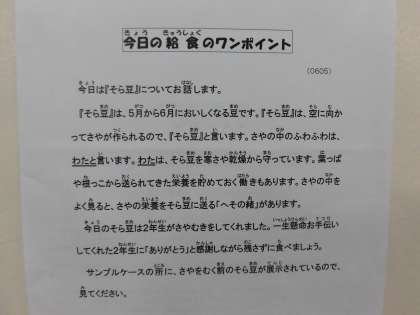 今日の給食のワンポイント
(0605)
今日は『そら豆』についてお話します。
『そら豆』は、5月から6月においしくなる豆です。『そら豆』は、空に向か
ってさやが作られるので、『そら豆』と言います。さやの中のふわふわは、
わたと言います。わたは、そら豆を寒さや乾燥から守っています。葉っぱ
や根っこから送られてきた栄養を貯めておく働きもあります。さやの中を
よく見ると、さやの栄養をそら豆に送る「へその緒」があります。
今日のそら豆は2年生がさやむきをしてくれました。一生懸命お手伝い
してくれた2年生に「ありがとう」と感謝しながら残さずに食べましょう。
サンプルケースの所に、さやをむく前のそら豆が展示されているので、
見てください。